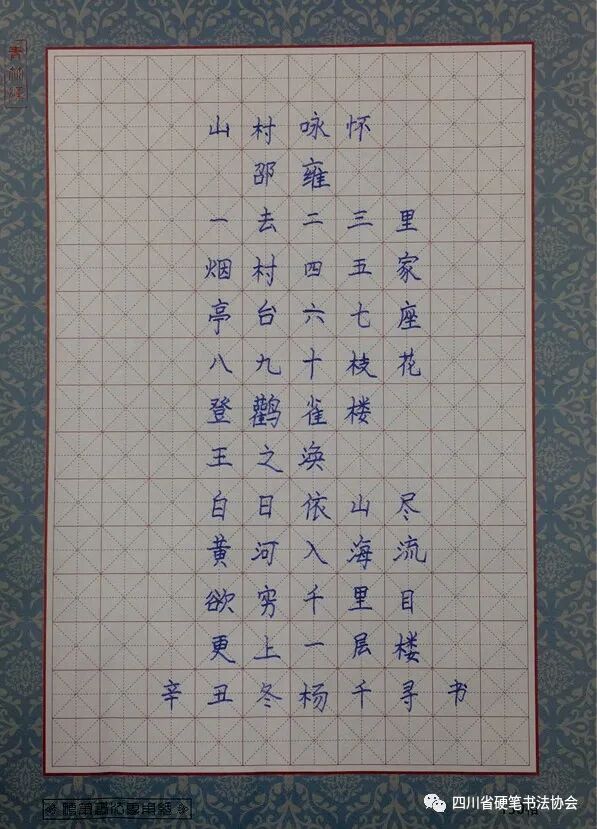 山村咏怀
邵雍
一去二三里
烟村四五家
亭台六七座
八九十枝花
登鹳雀楼
王之涣
白日依山尽
黄河入海流
欲穷千里目
更上一层楼
辛丑冬杨千寻书
四川省硬笔书法协会